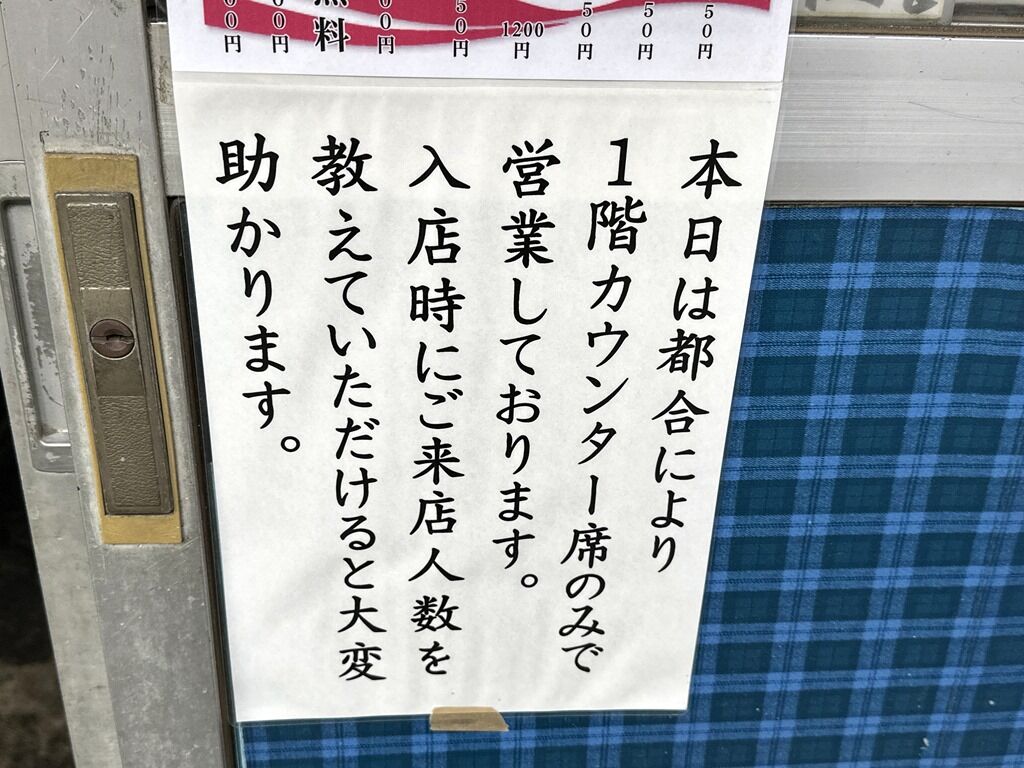 50円
50円
50円
1200円
50円
00円
無料
00円
00円
本日は都合により
1階カウンター席のみで
営業しております。
入店時にご来店人数を
教えていただけると大変
助かります。